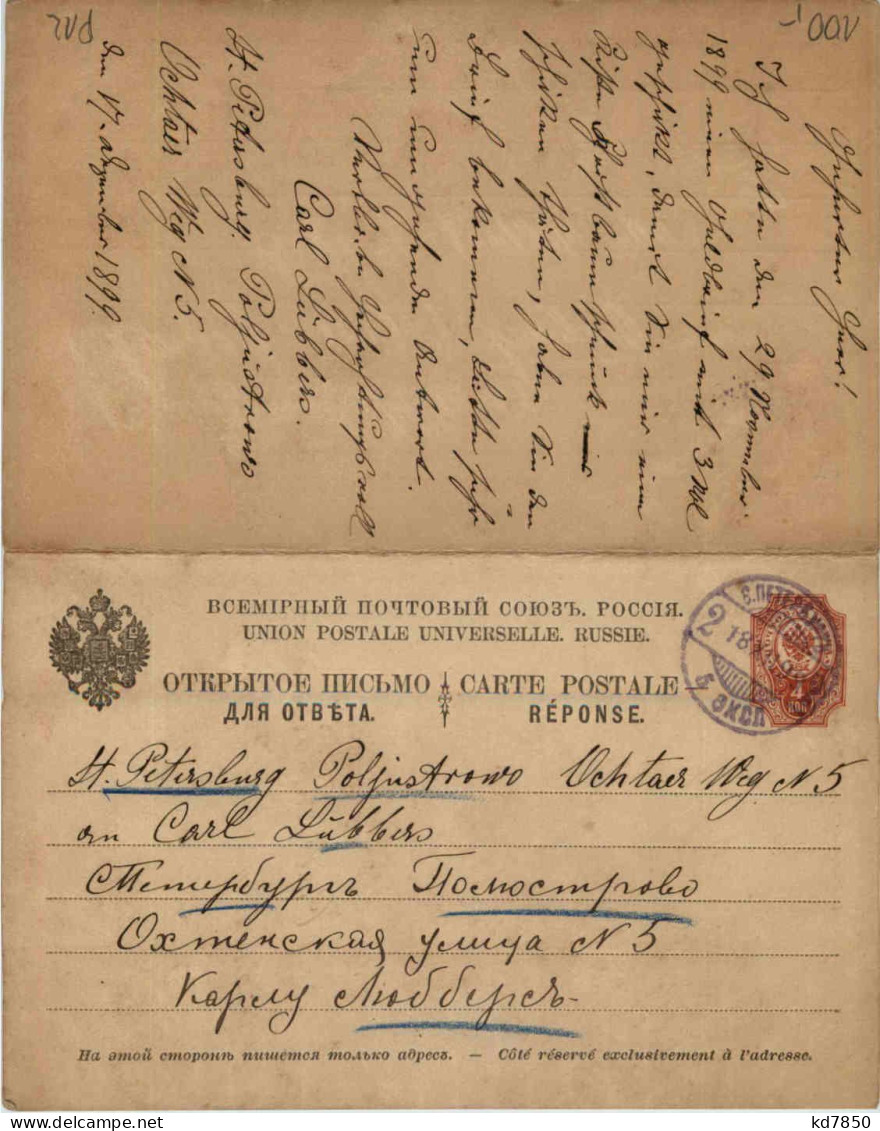 Geehrter Herr!
Ich hatte den 29 November
1899 einen Geldbrief mit 3 Rbl
geschikt, damit Sie mir eine
Kiste Christbaumschmuk
schiken thäten, haben Sie den
Brief bekommen, bitte sehr
um umgehende Antwort.
Carl Lübbers.
St. Petersburg. Poljustrowo
Ochtaer Weg N 5.
den 17. Dezember 1899.
ВСЕМІРНЫЙ ПОЧТОВЫЙ СОЮЗЪ. РОССІЯ.
UNION POSTALE UNIVERSELLE. RUSSIE.
ОТКРЫТОЕ ПИСЬМО CARTE POSTALE
ДЛЯ ОТВѢТА. RÉPONSE.
2
5 ЭКСП
4
КОП
St. Petersburg Poljustrowo Ochtaer Weg N 5
an Carl Lübbers
С Петербургъ Полюстрово
Охтенская улица N 5
Карлу Любберсъ
На этой сторонѣ пишется только адресъ. — Côté réservé exclusivement à l'adresse.
kd7850